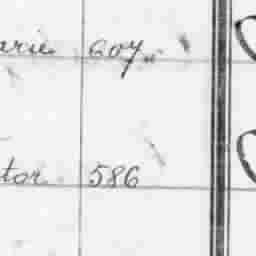 arie 607
tor 586